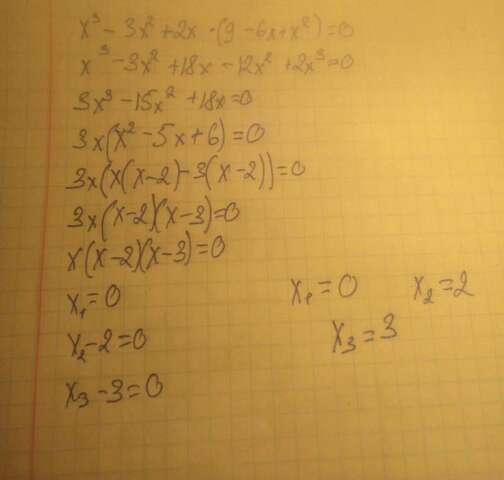 x³ - 3x² + 2x · (9 - 6x + x²) = 0
x³ - 3x² + 18x - 12x² + 2x³ = 0
3x³ - 15x² + 18x = 0
3x(x² - 5x + 6) = 0
3x(x(x - 2) - 3(x - 2)) = 0
3x(x - 2)(x - 3) = 0
x(x - 2)(x - 3) = 0
x₁ = 0
x₂ - 2 = 0
x₃ - 3 = 0
x₁ = 0 x₂ = 2
x₃ = 3